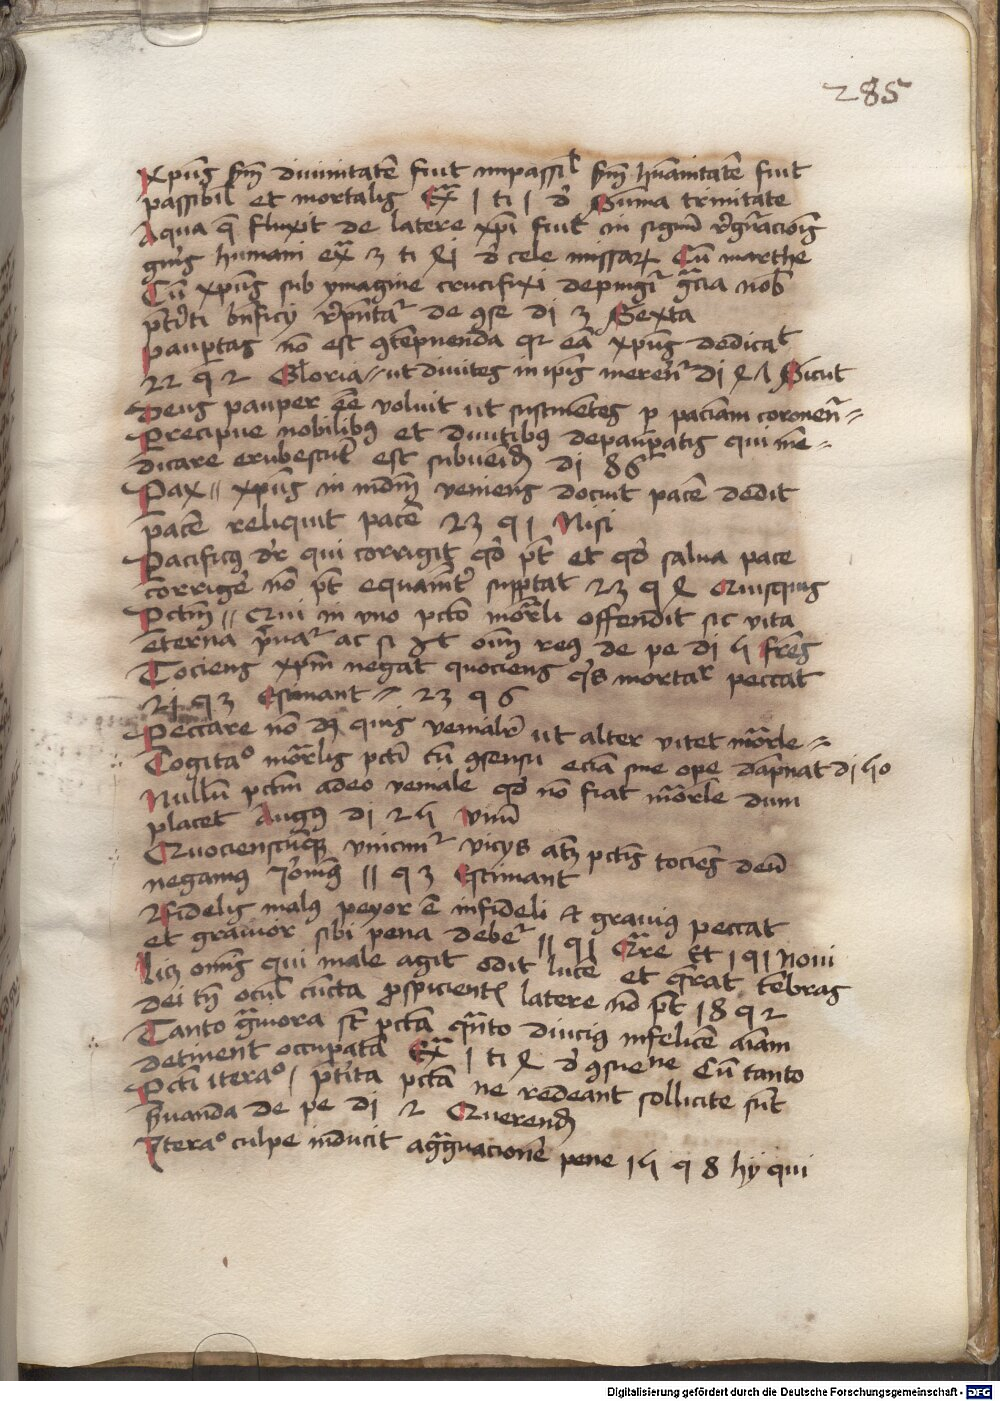 285
xpūs scdm diuinitatē fuit impassil scdm hūanitatē fuit
passibil et mortalis Exª 1 ti 1 d Suma trinitate
Aqua q̄ fluxit de latere xpi fuit in signū rgnacōis
gnis humani exª 3 ti 41 d cele missar Cū marthe
Cū xpūs sub ymagine crucifixi depingit gcia nob
ptiti bnficy rpntat de 9se di 3 Sexta
paupertas nō est 9tēpnenda qr eā xpūs dedicat
22 q 2 Gloria // ut diuites in ipis merent di 41 Sicut
Deus pauper ēē voluit ut sustinētes p paciam coronent
Precipue nobilib9 et diuitib9 depaupatis qui mē
dicare erubescūt est subueīd di 86
Pax // xpūs in mdm veniens docuit pacē dedit
pacē reliquit pacē 23 q 1 Nisi
Pacific9 dr qui corrigit qd pt et qd salua pace
corrigē nō pt equanimit supptat 23 q 4 Quisquis
Pctm // Qui in vno pcto mortli offendit sic vita
eterna priuat ac si eēt oīm re9 de pe di 5 fres
Tociens xpm negat quociens qs mortar peccat
21 q 3 Estimant // 23 q 6
Peccare nō dz quis venialr ut alter vitet mortle
Cogitaº mortlis pcti cū 9sensu eciā sine ope dāpnat di 50
Nullū pctm adeo veniale qd nō fiat mortle dum
placet Aug9 di 25 Vnū
Quocienscūqz vincimr vicys atqz pctis tociēs deū
negamus Ieronim9 11 q 3 Estimant
Fidelis mal9 peyor ē infideli et graui9 peccat
et grauior sibi pena debet 11 q 1 Et 1 q 1 Noui
Licz omīs qui male agit odit lucē et qrat tenebras
dei tn ocul cūcta pspicient latere nō pt 18 q 2
Tanto grauiora st pctā qnto diuci9 infelicē aīam
detinent occupatā Exª 1 ti 4 d 9suene Cū tanto
Pcti iteraº / ptita pctā ne redeant sollicite sūt
suanda de pe di 2 Querend
Iteraº culpe inducit aggrauacionē pene 15 q 8 hij qui
Digitalisierung gefördert durch die Deutsche Forschungsgemeinschaft - DFG